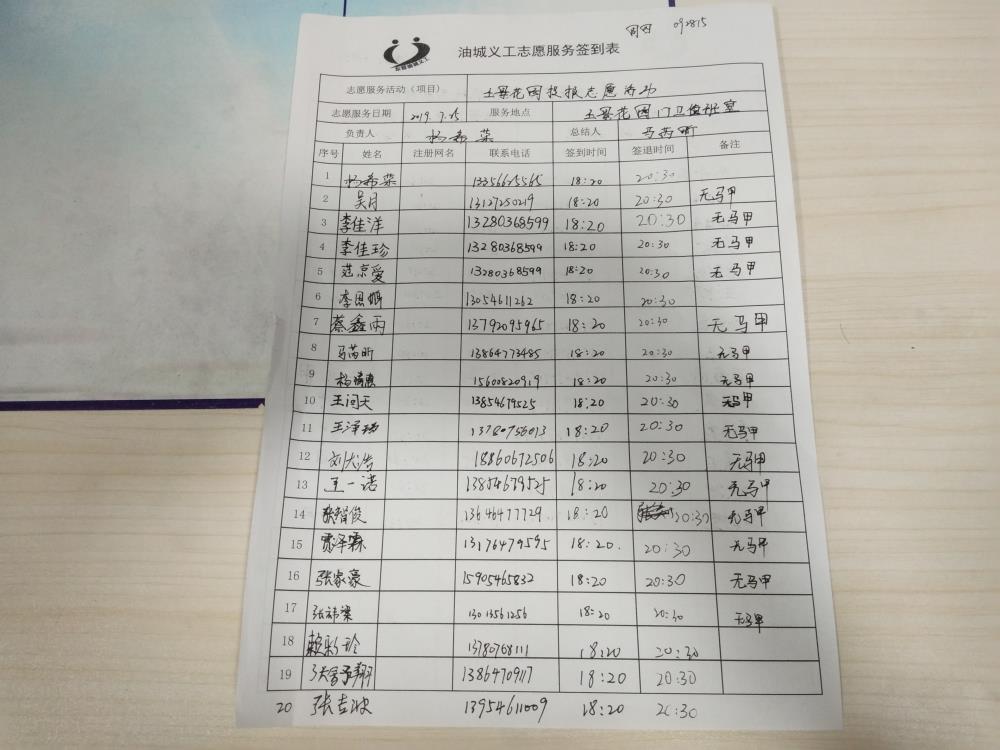 周图 092815
东营油城义工
油城义工志愿服务签到表
志愿服务活动（项目） 土景花园投报志愿活动
志愿服务日期 2019.7.25 服务地点 土景花园门卫值班室
负责人 杨希荣 总结人 马芮昕
序号 姓名 注册网名 联系电话 签到时间 签退时间 备注
1 杨希荣 13356625565 18:20 20:30
2 吴月 13127250219 18:20 20:30 无马甲
3 李佳洋 13280368599 18:20 20:30 无马甲
4 李佳珍 13280368599 18:20 20:30 无马甲
5 范京爱 13280368599 18:20 20:30 无马甲
6 李恩 13054611262 18:20 20:30
7 蔡鑫雨 13792095965 18:20 20:30 无马甲
8 马芮昕 13864773485 18:20 20:30 无马甲
9 杨 15600820919 18:20 20:30 无马甲
10 王问天 13854679525 18:20 20:30 无马甲
11 王泽 13780756013 18:20 20:30 无马甲
12 刘大浩 18860672506 18:20 20:30 无马甲
13 王一诺 13854679525 18:20 20:30 无马甲
14 张智俊 13646477729 18:20 20:30 无马甲
15 贾泽霖 13176479595 18:20. 20:30 无马甲
16 张家豪 15905465832 18:20 20:30 无马甲
17 张梁 13013561256 18:20 20:30 无马甲
18 赖彩玲 13780768111 18:20 20:30
19 张富予翔 13864709117 18:20 20:30
20 张吉波 13954611009 18:20 20:30